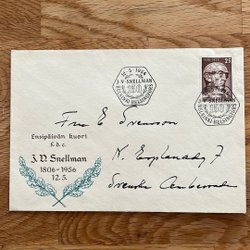 12.5.1956
J.V. SNELLMAN
150
HELSINKI HELSINGFORS
25
Fru E Svensson
Ensipäivän kuori
f.d.c.
J.V. Snellman
1806-1956
12.5.
N. Esplanadg 7
Svenska Ambassaden